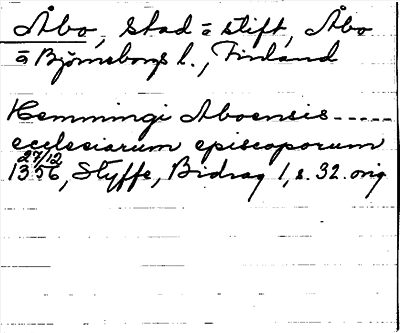 Åbo, stad o stift, Åbo
o Björneborgs l., Finland
Hemmingi Aboensis -----
ecclesiarum episcoporum
27/12
1356, Styffe, Bidrag 1, s. 32. orig